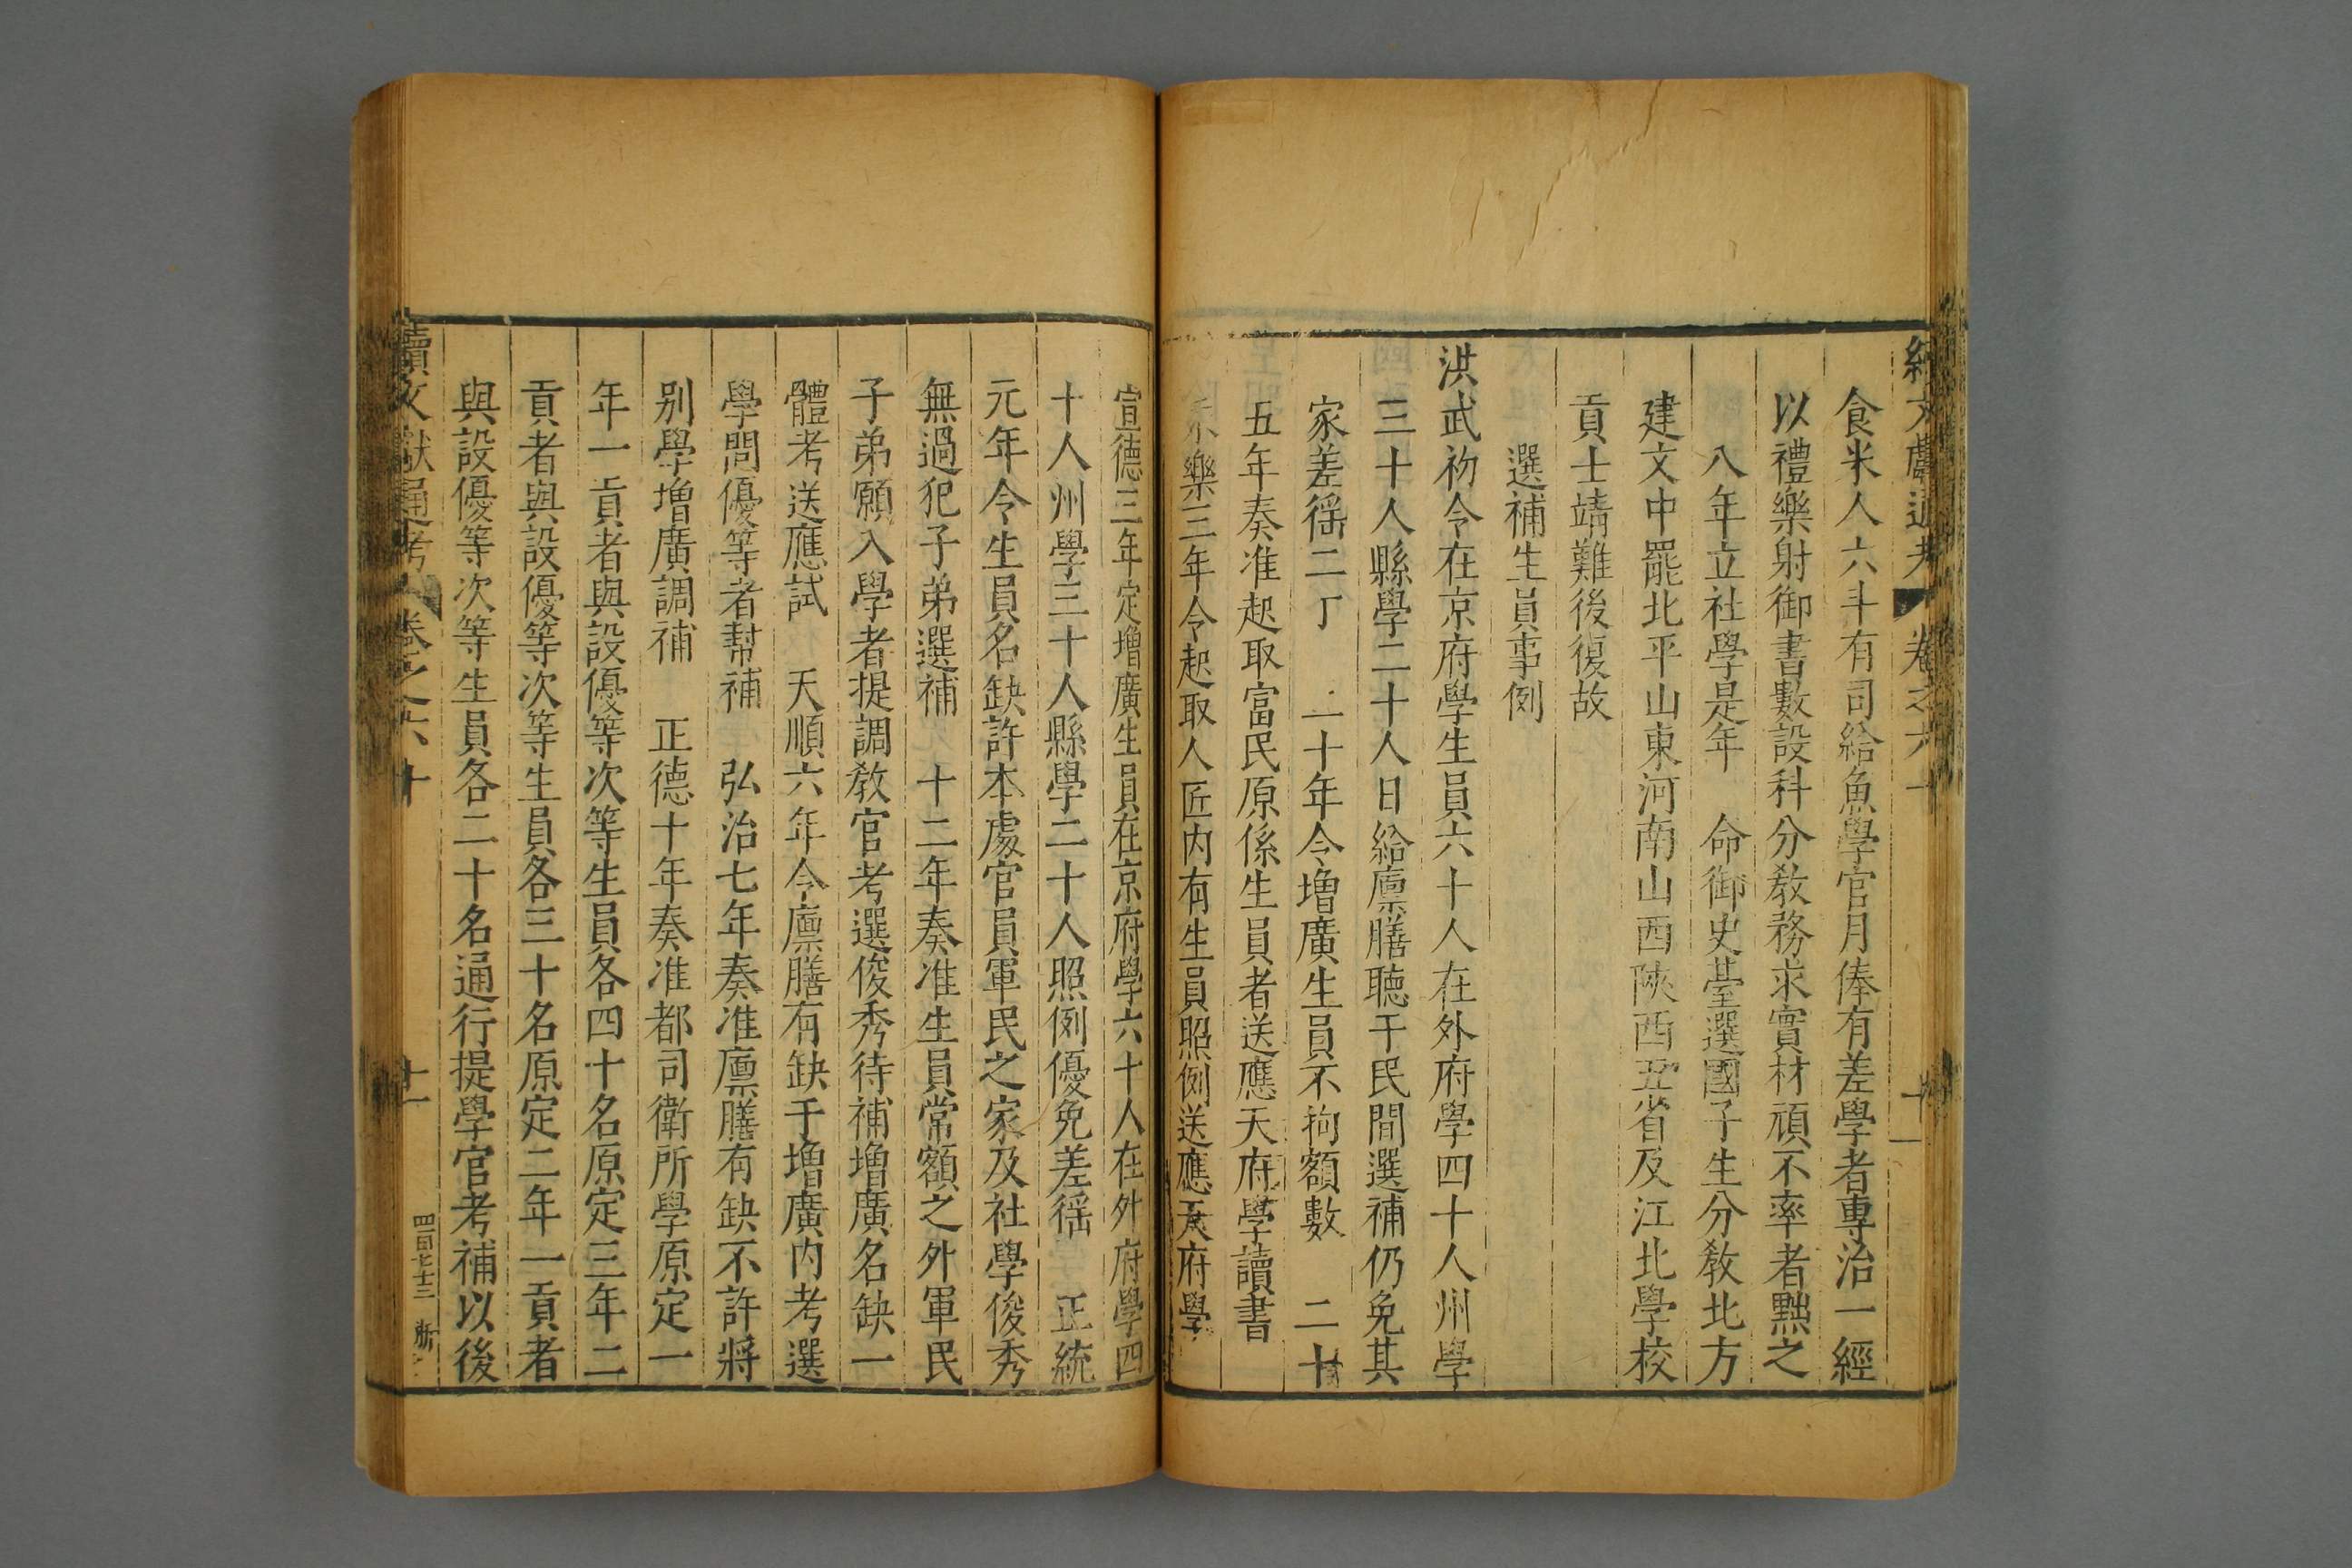 食米人六斗有司給魚學官月俸有差學者專治一經
以禮樂射御書數設科分教務求實材頑不率者黜之
八年立社學是年　命御史臺選國子生分教北方
建文中罷北平山東河南山西陝西五省及江北學校
貢士靖難後復故
選補生員事例
洪武初令在京府學生員六十人在外府學四十人州學
三十人縣學二十人日給廩膳聽于民間選補仍免其
家差徭二丁　二十年令增廣生員不拘額數　二十
五年奏准起取富民原係生員者送應天府學讀書
樂三年令起取人匠内有生員照例送應天府學
宣德三年定增廣生員在京府學六十人在外府學四
十人州學三十人縣學二十人照例優免差徭　正統
元年令生員名缺許本處官員軍民之家及社學俊秀
無過犯子弟選補　十二年奏准生員常額之外軍民
子弟願入學者提調教官考選俊秀待補增廣名缺一
體考送應試　天順六年令廩膳有缺于增廣内考選
學問優等者幫補　弘治七年奏准廩膳有缺不許將
别學增廣調補　正德十年奏准都司衛所學原定一
年一貢者與設優等次等生員各四十名原定三年二
貢者與設優等次等生員各三十名原定二年一貢者
與設優等次等生員各二十名通行提學官考補以後
續文獻通考　卷之六十　十一